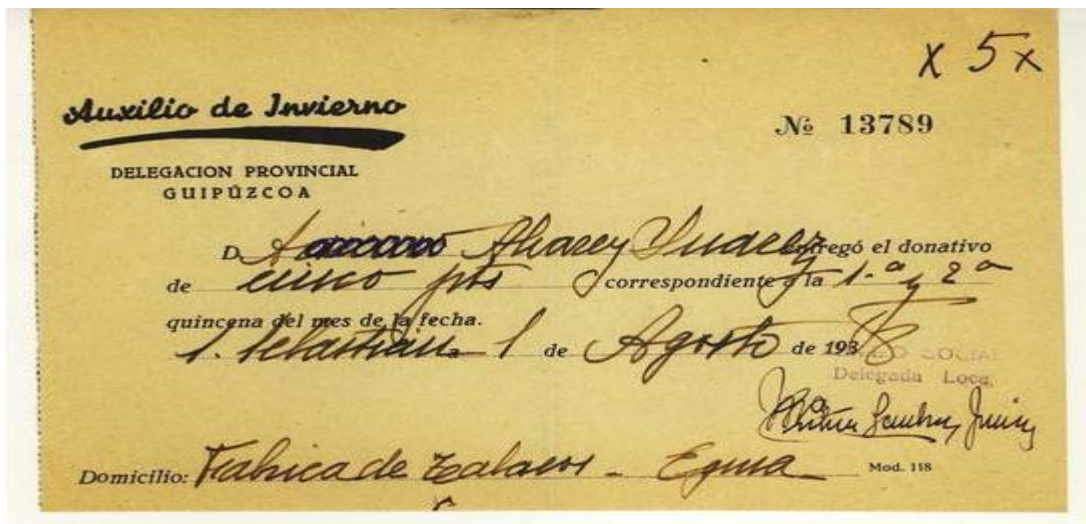 X 5 x
Auxilio de Invierno
Nº 13789
DELEGACION PROVINCIAL
GUIPÚZCOA
D. Alvarez entregó el donativo
de cinco pts correspondiente a la 1.ª y 2ª
quincena del mes de la fecha.
S. Sebastián a 1 de Agosto de 1938
SOCIAL
Delegada Local
Domicilio: Fabrica de Tabacos - Eguia
Mod. 118